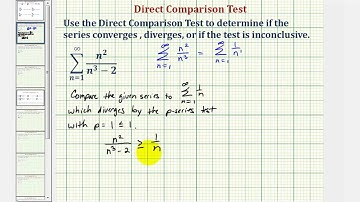 Direct Comparison Test
Use the Direct Comparison Test to determine if the
series converges , diverges, or if the test is inconclusive.
∑_{n=1}^{∞} n²/(n³ − 2)    ∑_{n=1}^{∞} n²/n³ = ∑_{n=1}^{∞} 1/n
Compare the given series to ∑_{n=1}^{∞} 1/n
which diverges by the p-series test
with p = 1 ≤ 1.
n²/(n³ − 2) ≥ 1/n